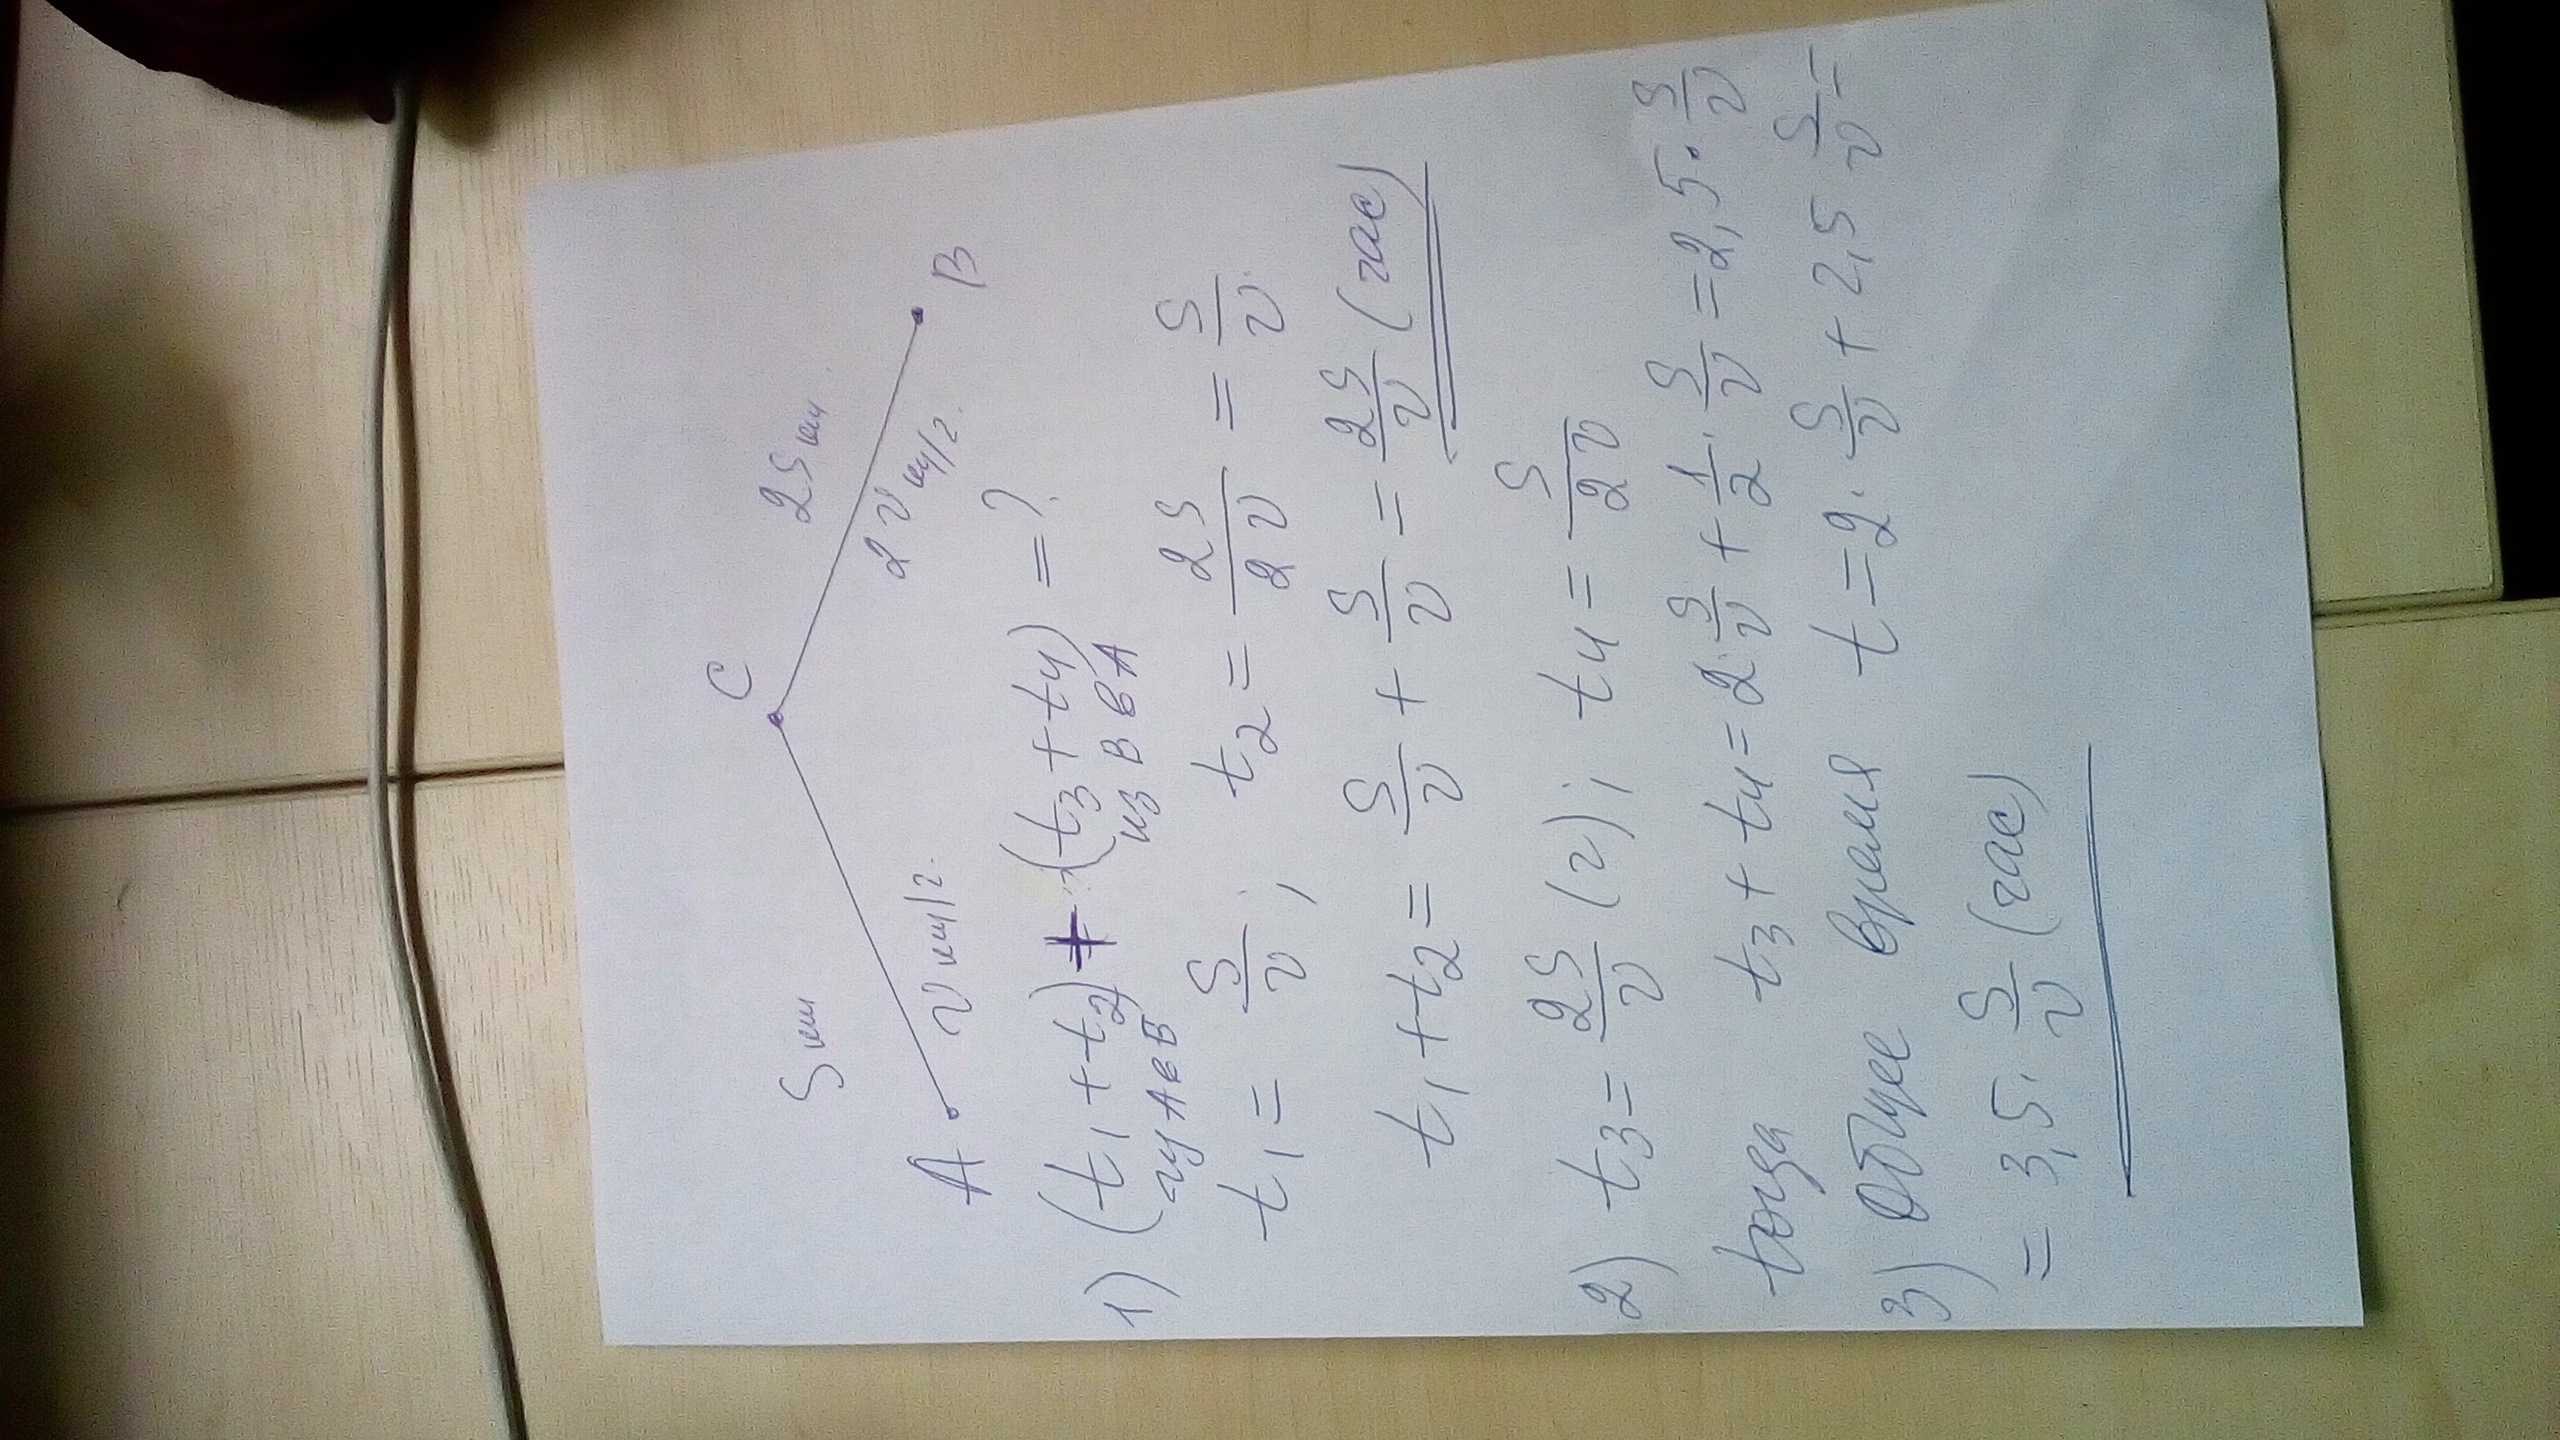 C
S км
2S км
A
v км/г.
2v км/г.
B
1) (t₁ + t₂) + (t₃ + t₄) = ?
из A в B
из B в A
t₁ = S/v ; t₂ = 2S/2v = S/v.
t₁ + t₂ = S/v + S/v = 2S/v (час)
2) t₃ = 2S/v (ч); t₄ = S/2v
тогда t₃ + t₄ = 2 S/v + 1/2 · S/v = 2,5 · S/v
3) Общее время t = 2 · S/v + 2,5 S/v =
= 3,5 · S/v (час)